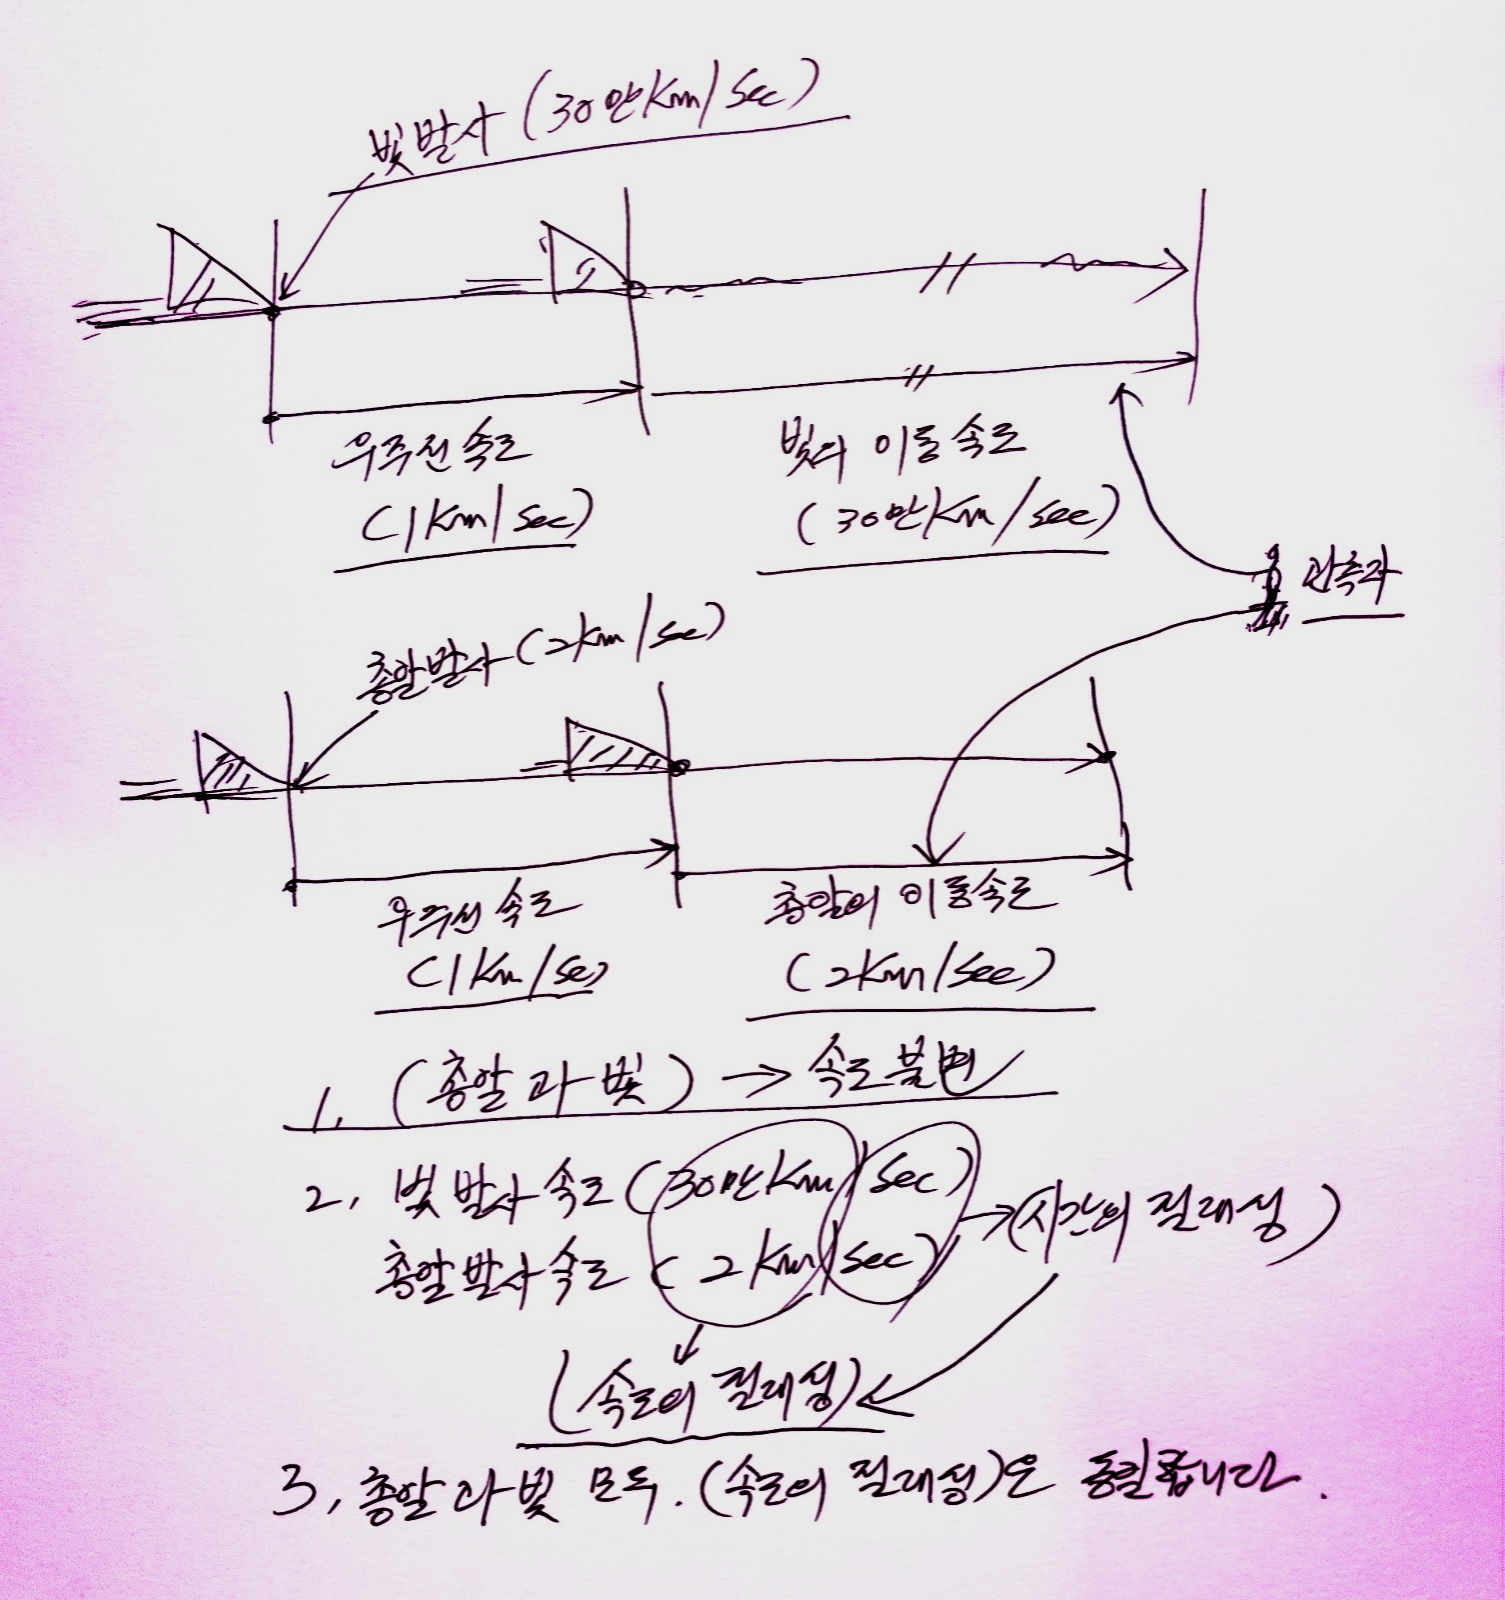 빛발사 (30만Km/Sec)
우주선 속도
(1Km/Sec)
빛의 이동속도
(30만Km/Sec)
관측자
총알발사 (2Km/Sec)
우주선 속도
(1Km/Sec)
총알의 이동속도
(2Km/Sec)
1. (총알과 빛) → 속도불변
2. 빛 발사 속도 (30만Km/Sec)
총알발사 속도 (2Km/Sec)
→ (시간의 절대성)
(속도의 절대성)
3. 총알과 빛 모두. (속도의 절대성)은 동일합니다.